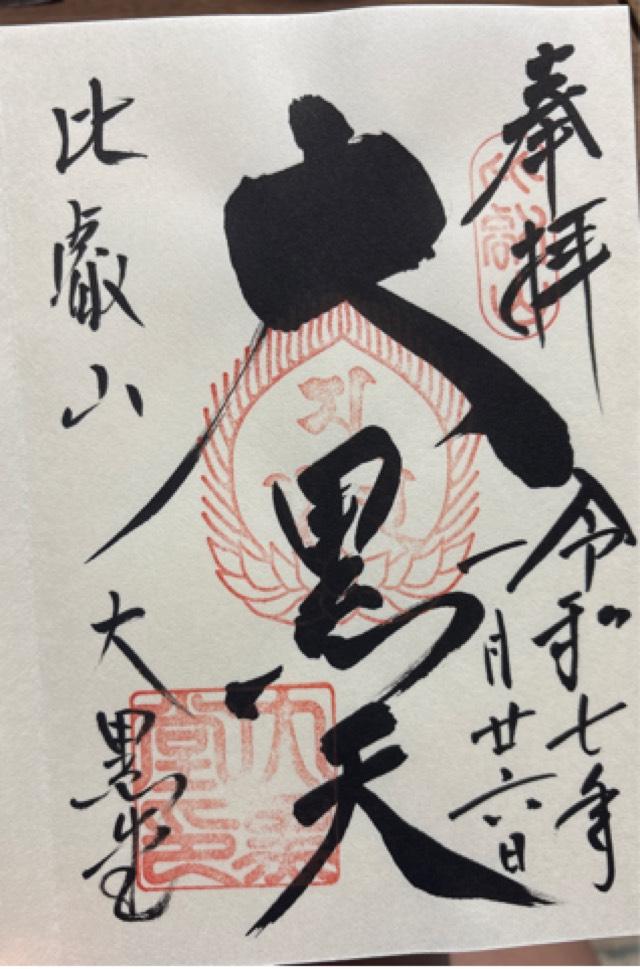 奉拝
令和七年
一月廿六日
大黒天
比叡山
大黒堂
大黒堂印